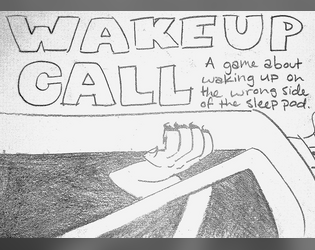 WAKEUP
CALL
A game about
waking up on
the wrong side
of the sleep pod.